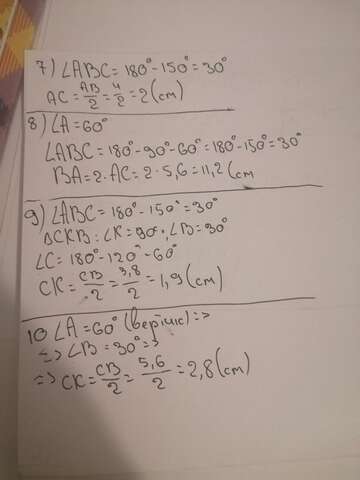 7) ∠ABC = 180° - 150° = 30°
AC = AB/2 = 4/2 = 2 (cm)
8) ∠A = 60°
∠ABC = 180° - 90° - 60° = 180° - 150° = 30°
BA = 2·AC = 2·5,6 = 11,2 (cm
9) ∠ABC = 180° - 150° = 30°
ΔCKB: ∠K = 90°; ∠B = 30°
∠C = 180° - 120° - 60°
CK = CB/2 = 3,8/2 = 1,9 (cm)
10 ∠A = 60° =>
=> ∠B = 30° =>
=> CK = CB/2 = 5,6/2 = 2,8 (cm)